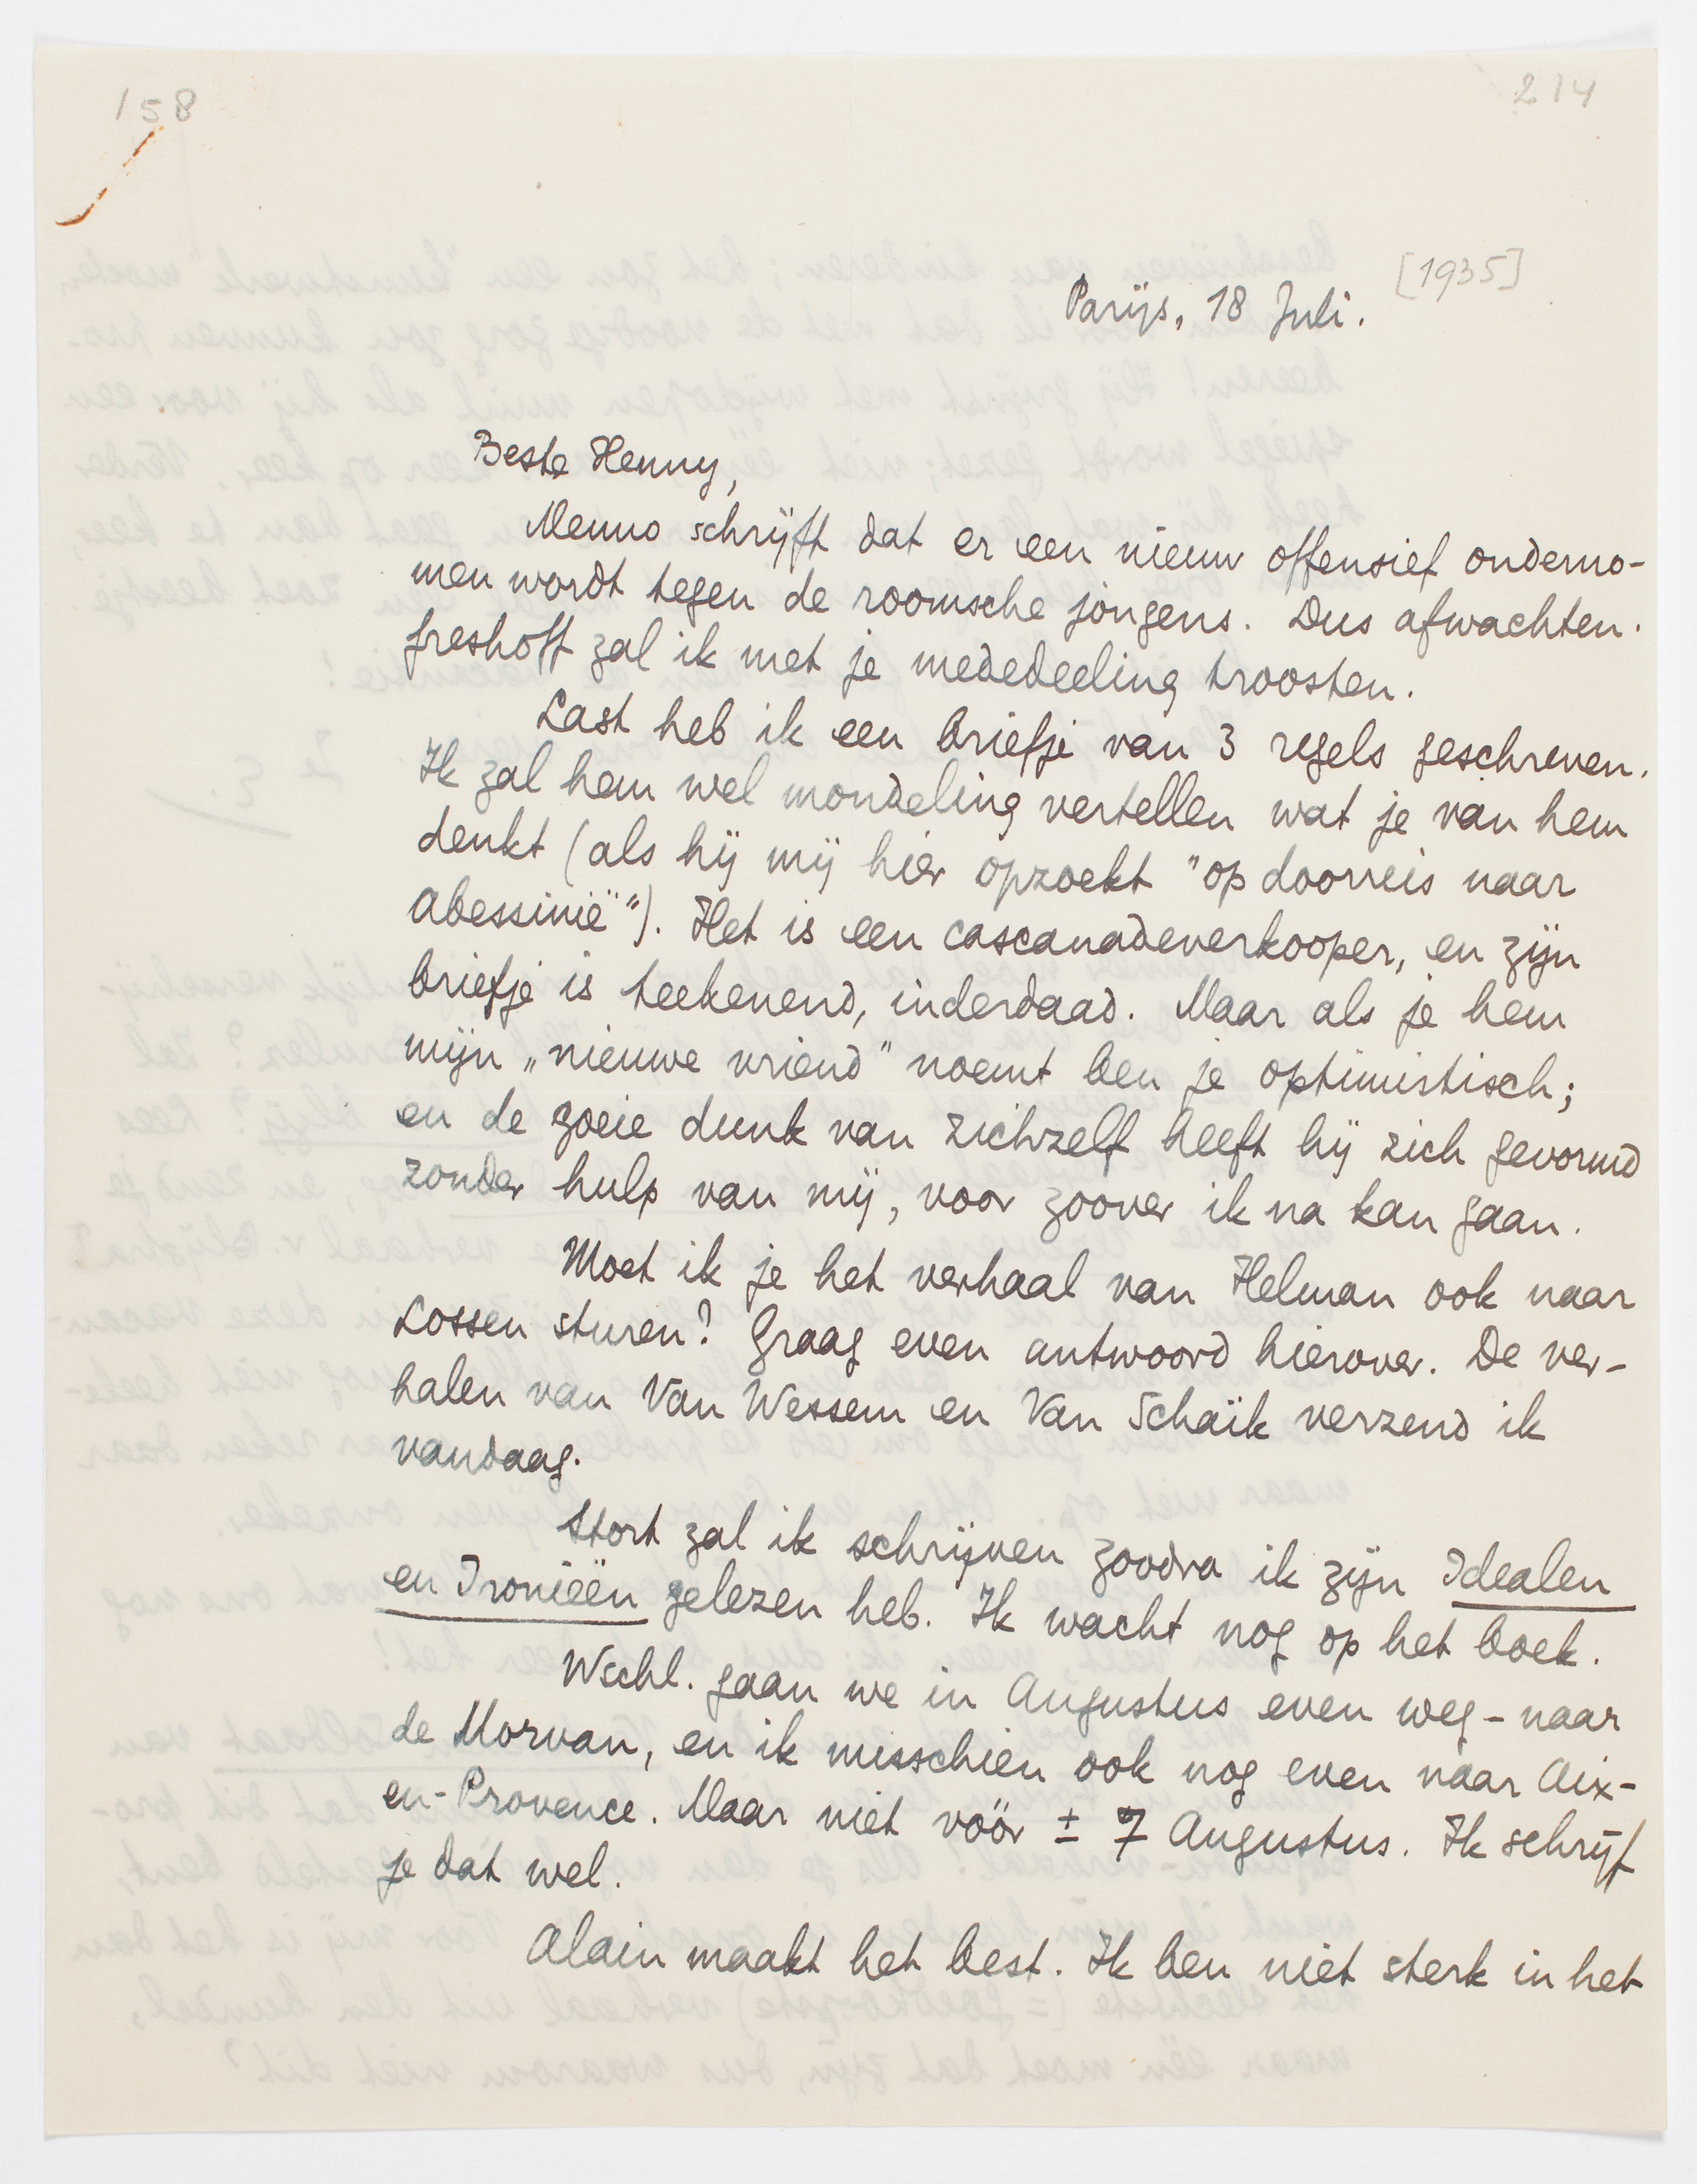 158
214
Parijs, 18 Juli.
[1935]
Beste Henny,
Menno schrijft dat er een nieuw offensief onderno-
men wordt tegen de roomsche jongens. Dus afwachten.
Greshoff zal ik met je mededeeling troosten.
Last heb ik een briefje van 3 regels geschreven.
Ik zal hem wel mondeling vertellen wat je van hem
denkt (als hij mij hier opzoekt "op doorreis naar
Abessinië"). Het is een cascanadeverkooper, en zijn
briefje is teekenend, inderdaad. Maar als je hem
mijn „nieuwe vriend" noemt ben je optimistisch;
en de goeie dunk van zichzelf heeft hij zich gevormd
zonder hulp van mij, voor zoover ik na kan gaan.
Moet ik je het verhaal van Helman ook naar
Lossen sturen? Graag even antwoord hierover. De ver-
halen van Van Wessem en Van Schaïk verzend ik
vandaag.
Stort zal ik schrijven zoodra ik zijn Idealen
en Ironieën gelezen heb. Ik wacht nog op het boek.
Wschl. gaan we in Augustus even weg - naar
de Morvan, en ik misschien ook nog even naar Aix-
en-Provence. Maar niet vóór ± 7 Augustus. Ik schrijf
je dat wel.
Alain maakt het best. Ik ben niet sterk in het